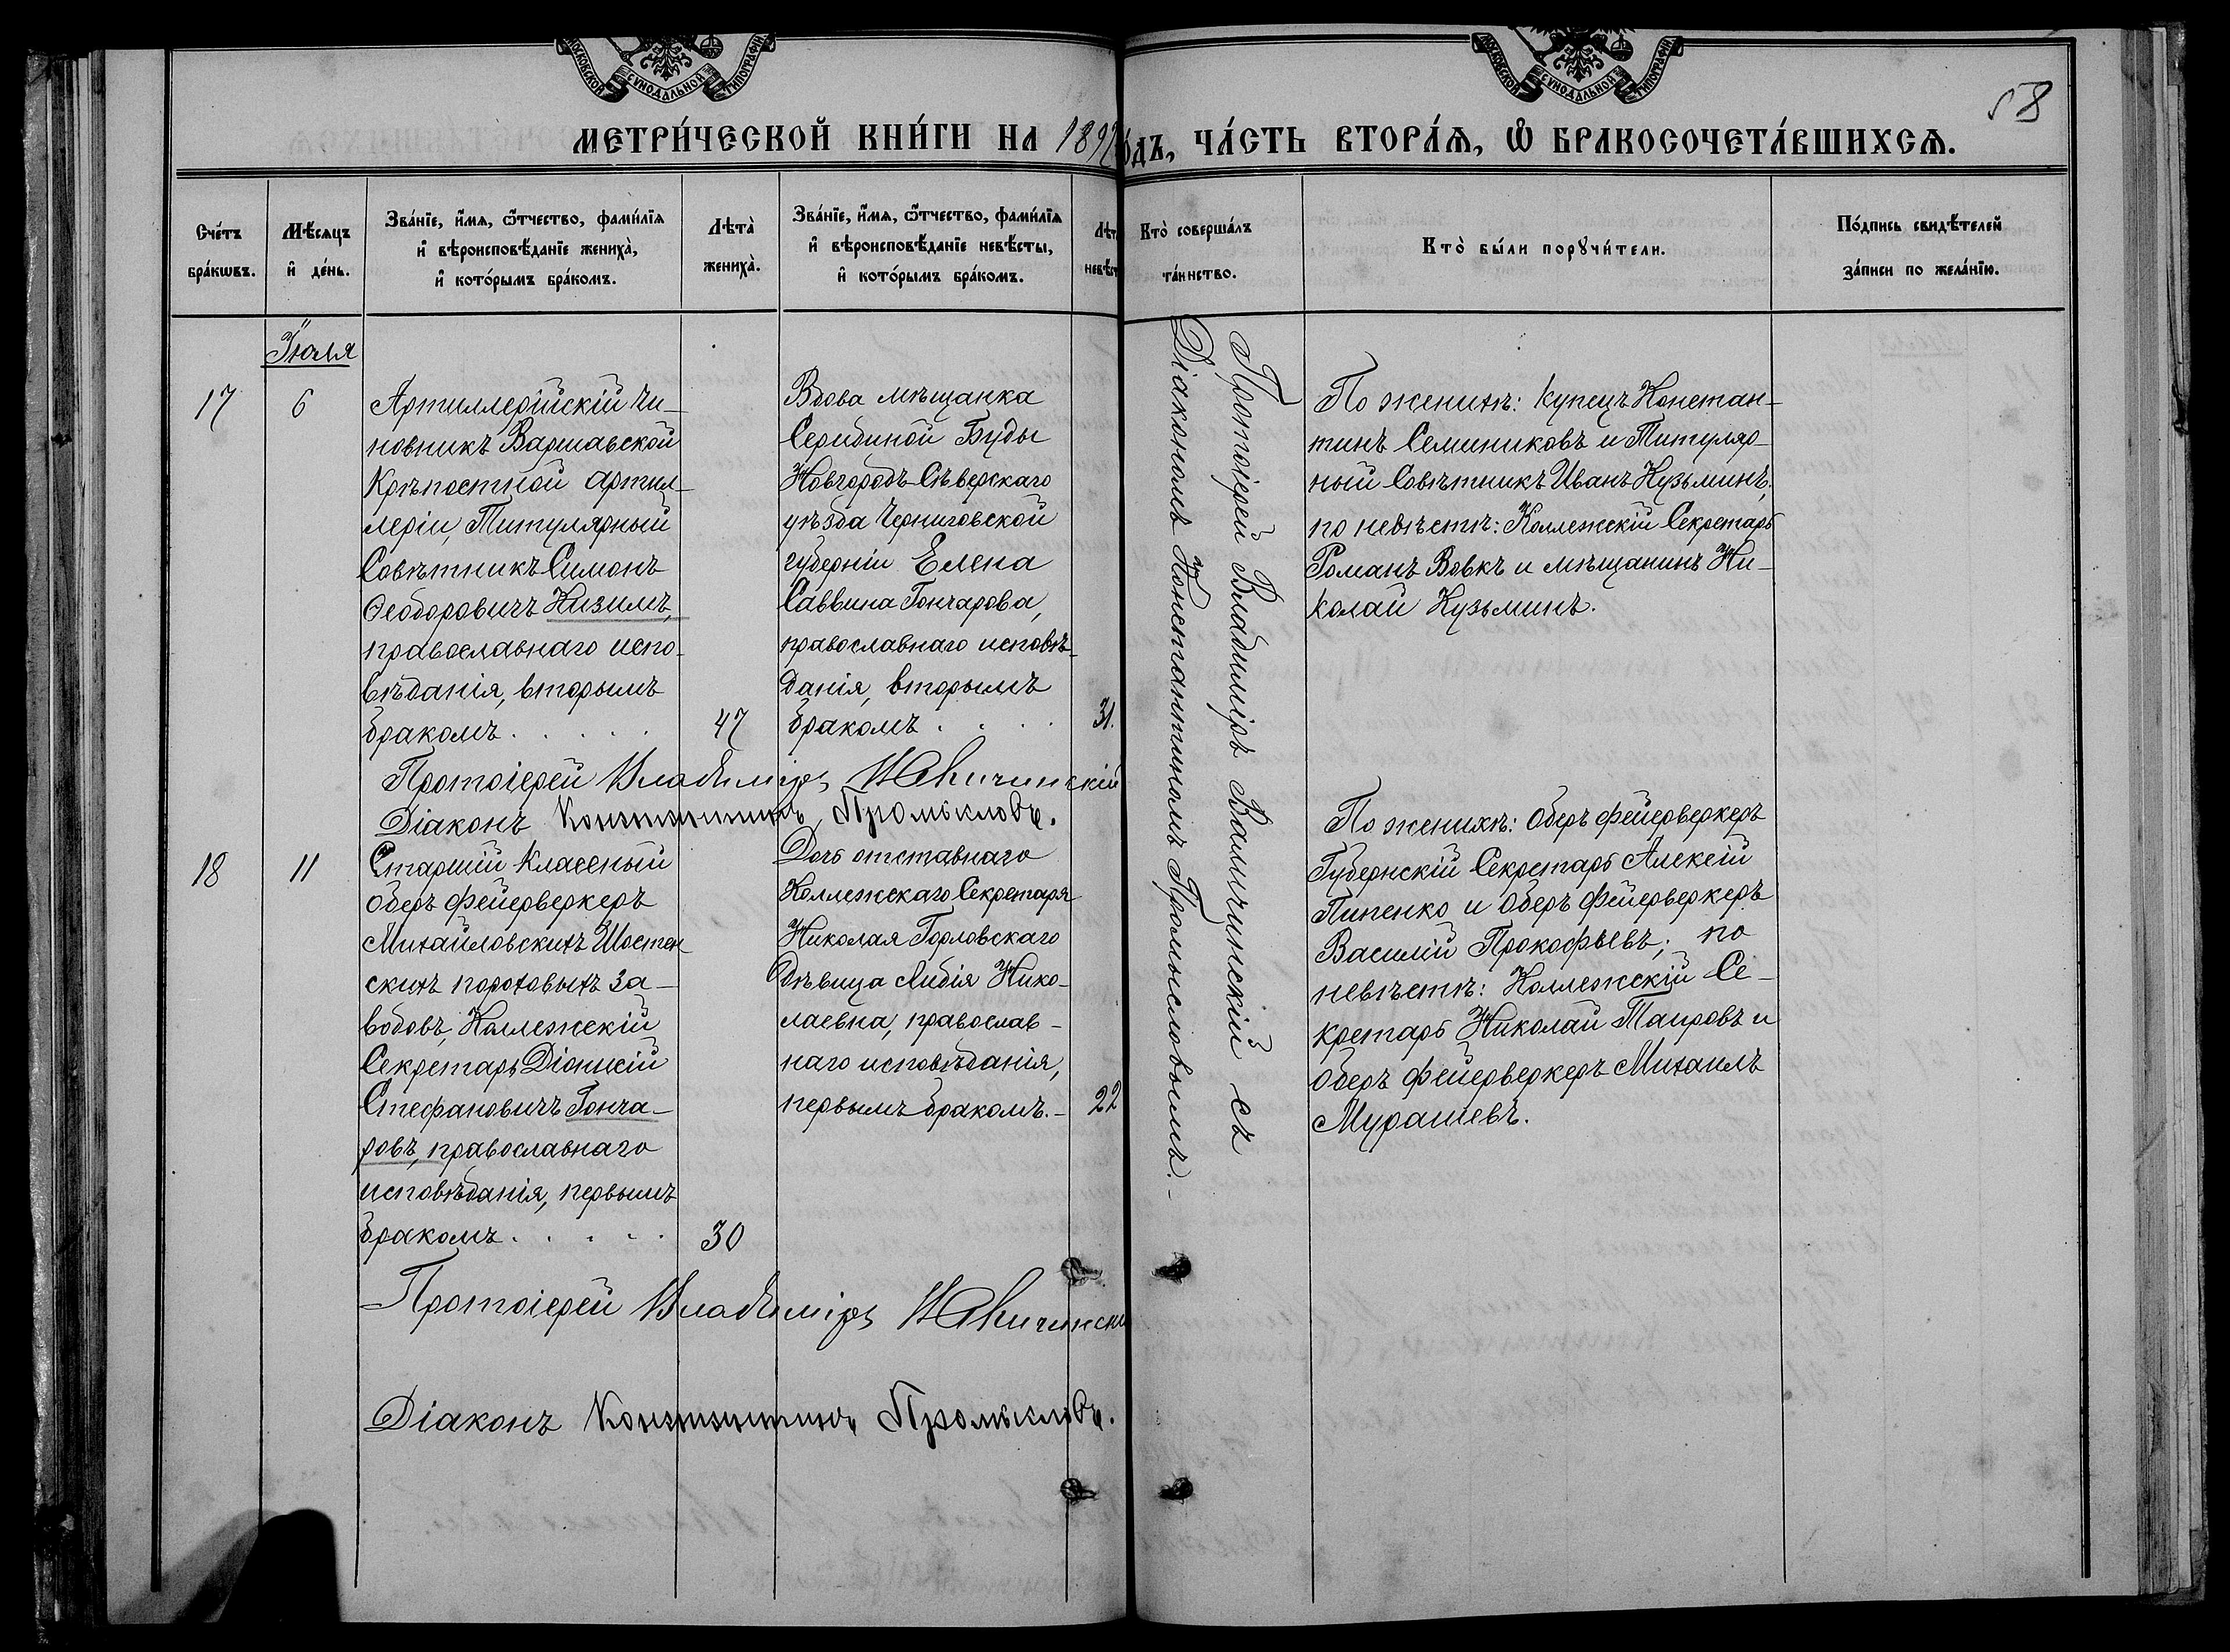 МОСКОВСКОЙ СѴНОДАЛЬНОЙ ТИПОГРАФІИ
МОСКОВСКОЙ СѴНОДАЛЬНОЙ ТИПОГРАФІИ
58
МЕТРИ́ЧЕСКОЙ КНИ́ГИ НА 189
ЧА́СТЬ ВТОРА́Ѧ, Ѽ БРАКОСОЧЕТА́ВШИХСѦ.
Сче́тъ
бра́кѡвъ.
Мѣ́сяцъ
и҆ де́нь.
Зва́нїе, и҆́мѧ, ѻ҆́тчество, фами́лїѧ
и҆ вѣроисповѣ́данїе жениха̀,
и҆ кото́рымъ бра́комъ.
Лѣта̀
жениха̀.
Зва́нїе, и҆́мѧ, ѻ҆́тчество, фами́лїѧ
и҆ вѣроисповѣ́данїе невѣ́сты,
и҆ кото́рымъ бра́комъ.
Кто̀ соверша́лъ
та́инство.
Кто̀ бы́ли порꙋчи́тели.
По́дпись свидѣ́телей
за́писи по жела́нїю.
Іюля
17
6
Артиллерійскій чи-
новникъ Варшавской
Крѣпостной артил-
леріи, Титулярный
Совѣтникъ Симонъ
Ѳеодоровичъ Низимъ,
православнаго испо-
вѣданія, вторымъ
бракомъ . . . . .
47
Вдова мѣщанка
Серединой Буды
Новгородъ-Сѣверскаго
уѣзда Черниговской
губерніи Елена
Саввина Гончарова,
православнаго исповѣ-
данія, вторымъ
бракомъ . . . .
31.
Протоіерей Владиміръ Валичинскій съ
Діакономъ Константиномъ Промысловымъ.-
По женихѣ: купецъ Констан-
тинъ Семиниковъ и Титуляр-
ный Совѣтникъ Иванъ Кузьминъ,
по невѣстѣ: Коллежскій Секретарь
Романъ Вовкъ и мѣщанинъ Ни-
колай Кузьминъ.
Протоіерей Владиміръ Валичинскій
Діаконъ Константинъ Промысловъ.
18
11
Старшій классный
Оберъ фейерверкеръ
Михайловскихъ Шостен-
скихъ пороховыхъ за-
водовъ, Коллежскій
Секретарь Діонисій
Стефановичъ Гонча-
ровъ, православнаго
исповѣданія, первымъ
бракомъ . . . . .
30
Дочь отставнаго
Коллежскаго Секретаря
Николая Горловскаго
дѣвица Лидія Нико-
лаевна, православ-
наго исповѣданія,
первымъ бракомъ.-
22
По женихѣ: Оберъ фейерверкеръ
Губернскій Секретарь Алексій
Пипенко и Оберъ фейерверкеръ
Василій Прокофьевъ; по
невѣстѣ: Коллежскій Се-
кретарь Николай Таировъ и
Оберъ фейерверкеръ Михаилъ
Мурашевъ.
Протоіерей Владиміръ
Діаконъ Константинъ Промысловъ.